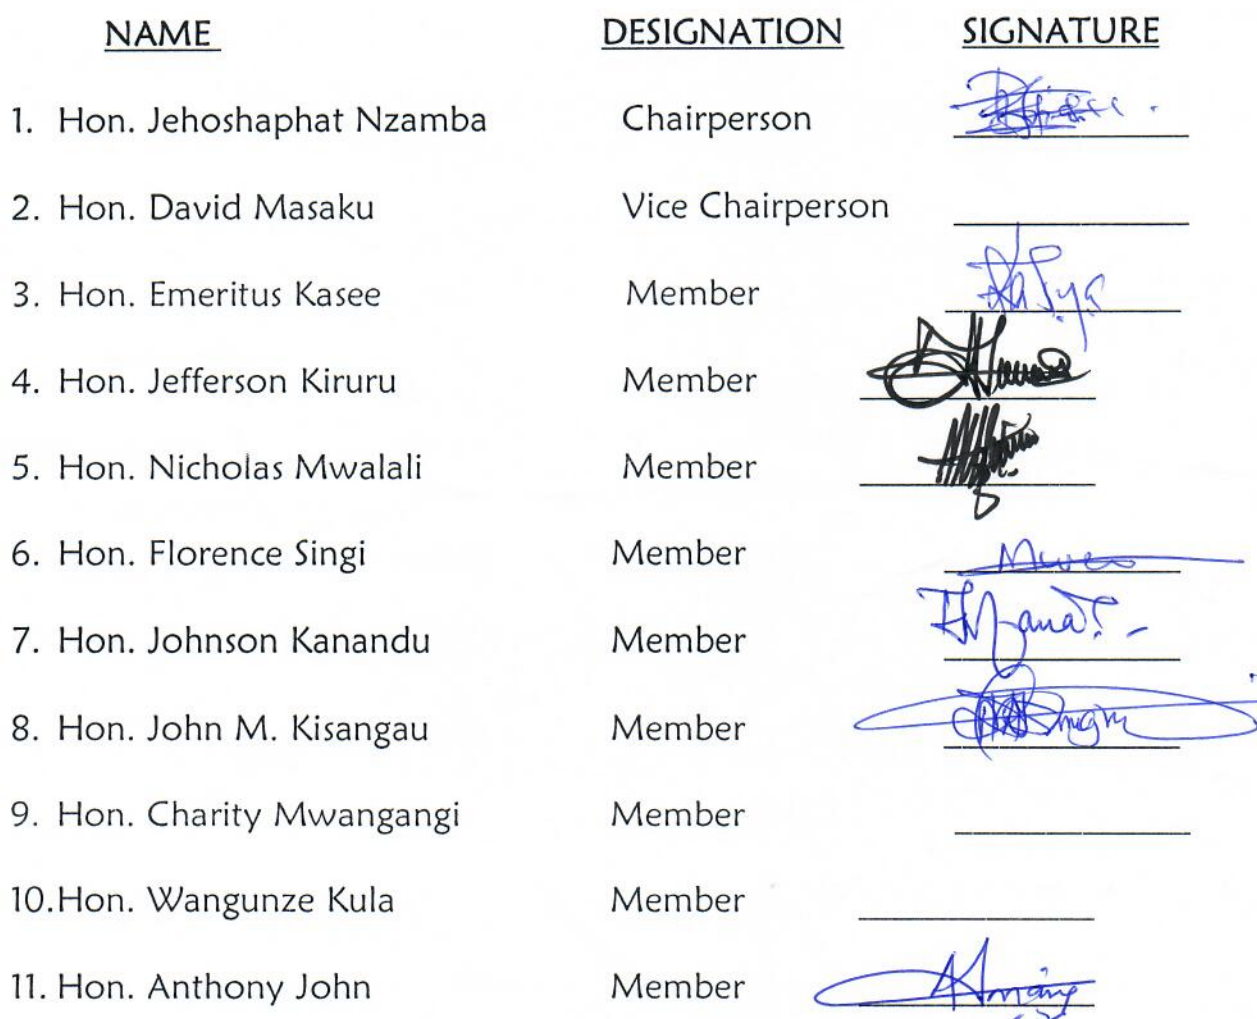 NAME DESIGNATION SIGNATURE
1. Hon. Jehoshaphat Nzamba Chairperson
2. Hon. David Masaku Vice Chairperson
3. Hon. Emeritus Kasee Member
4. Hon. Jefferson Kiruru Member
5. Hon. Nicholas Mwalali Member
6. Hon. Florence Singi Member
7. Hon. Johnson Kanandu Member
8. Hon. John M. Kisangau Member
9. Hon. Charity Mwangangi Member
10.Hon. Wangunze Kula Member
11. Hon. Anthony John Member